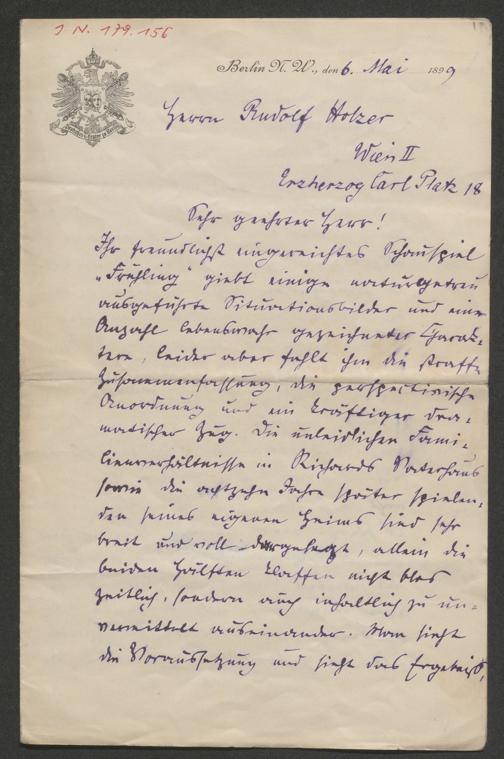 I N. 179.156
Berlin N. W., den 6. Mai 1899
Herrn Rudolf Holzer
Wien II
Erzherzog Carl Platz 18
Sehr geehrter Herr!
Ihr freundlichst eingereichtes Schauspiel
„Frühling“ giebt einige naturgetreu
ausgeführte Situationsbilder und eine
Anzahl lebenswahr gezeichneter Charak-
tere, leider aber fehlt ihm die straffe
Zusammenfassung, die perspectivische
Anordnung und ein kräftiger dra-
matischer Zug. Die unleidlichen Fami-
lienverhältnisse in Richards Vaterhaus
sowie die achtzehn Jahre später spielen-
den seines eigenen Heims sind sehr
breit und voll dargelegt, allein die
beiden Hälften klaffen nicht blos
zeitlich, sondern auch inhaltlich zu un-
vermittelt auseinander. Man sieht
die Voraussetzung und sieht das Ergebniß,